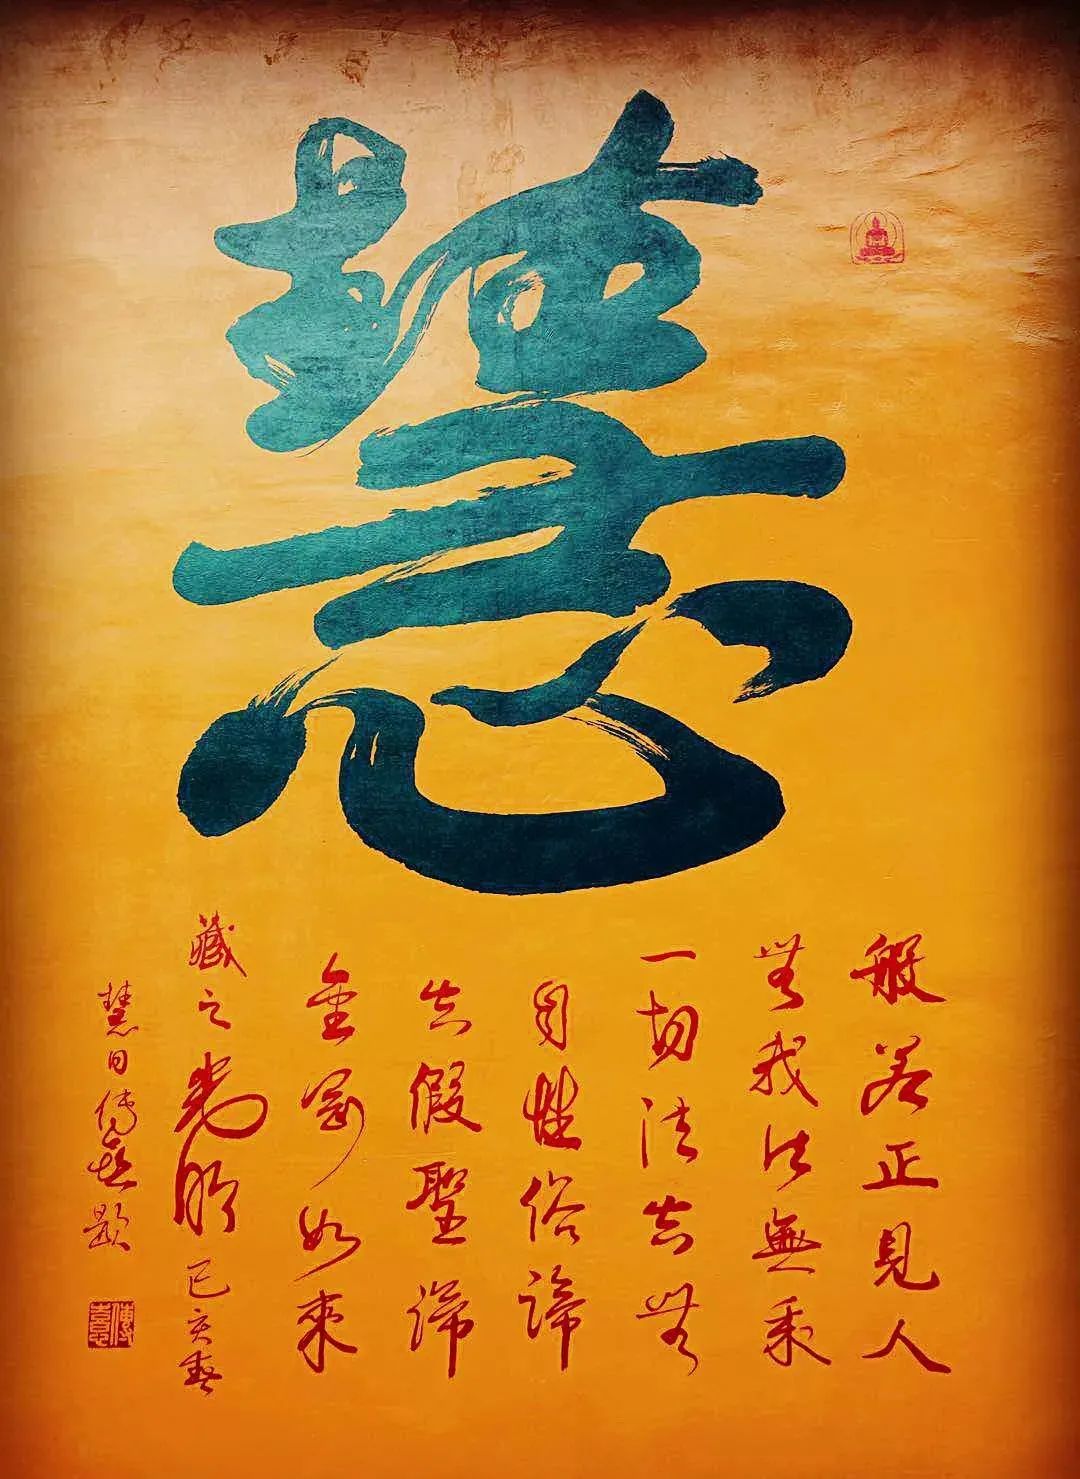 慧
般若正見人
無我法無我
一切法空無
自性俗諦
空假聖諦
金剛如來
藏之光明 己亥春
慧日傳喜題
傳喜